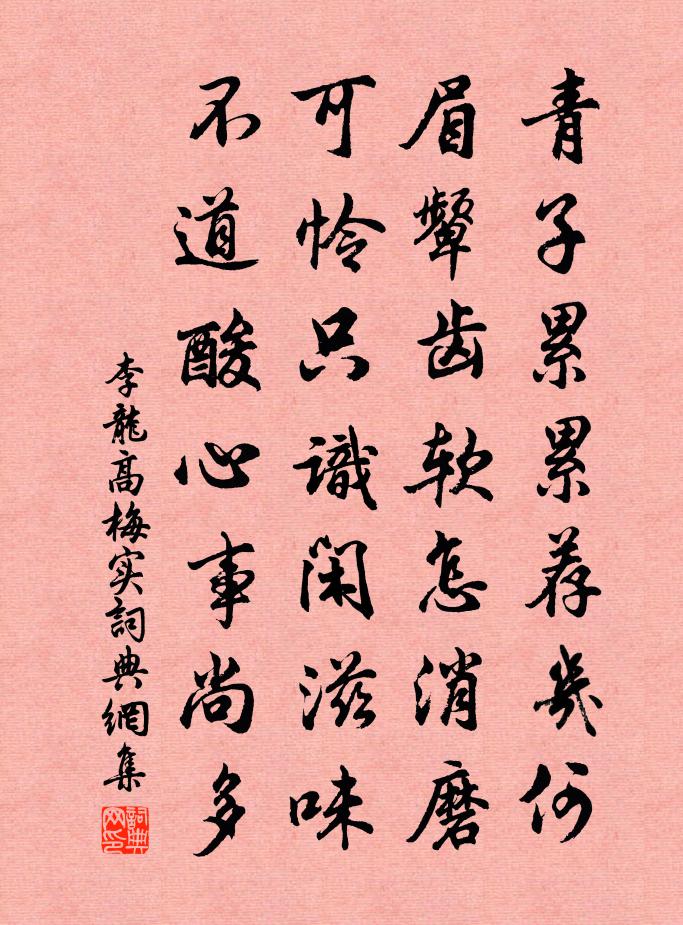 青子累累荐幾何
眉顰齿软怎消磨
可怜只識闲滋味
不道酸心事尚多
李龍高梅实詞典網集
詞典网印